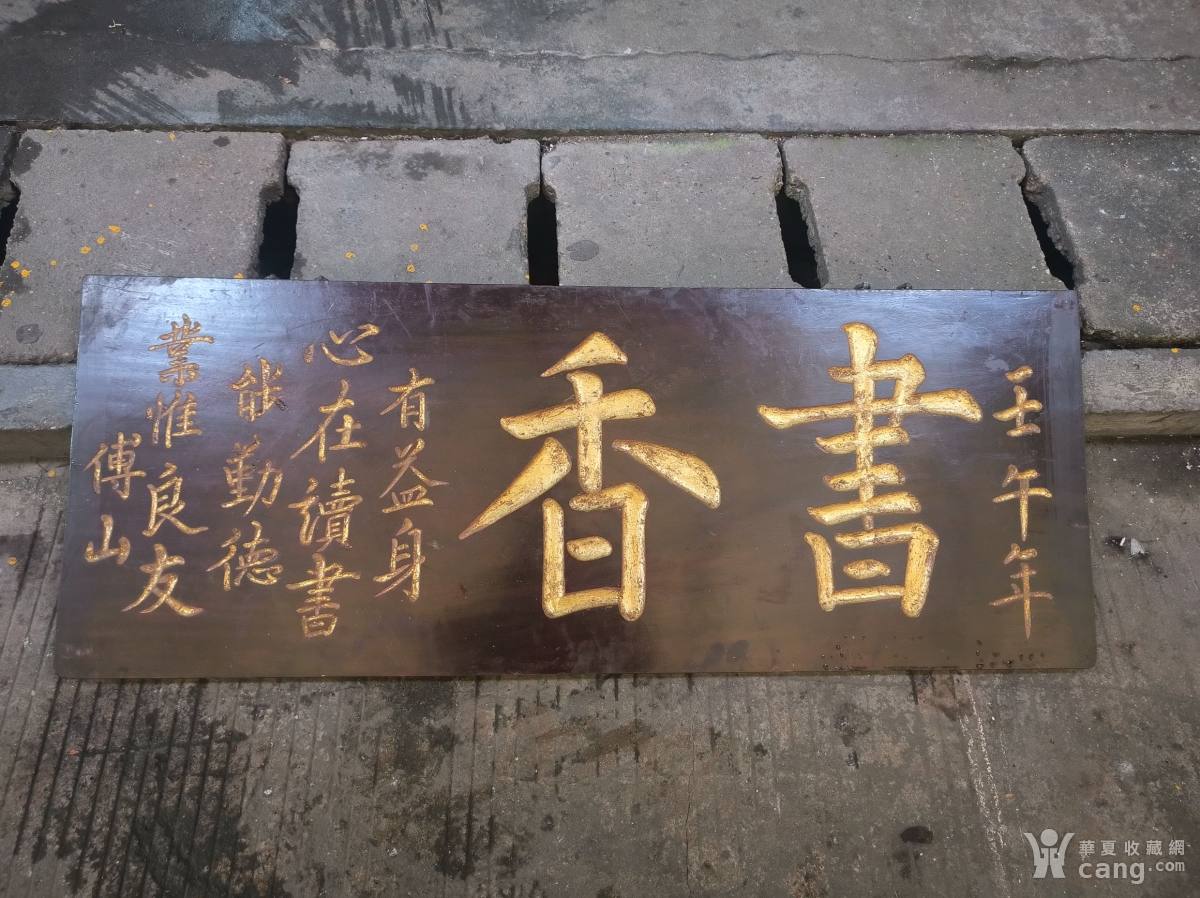 壬午年
書香
有益身
心在讀書
能勤德
業惟良友
傅山
華夏收藏網
cang.com